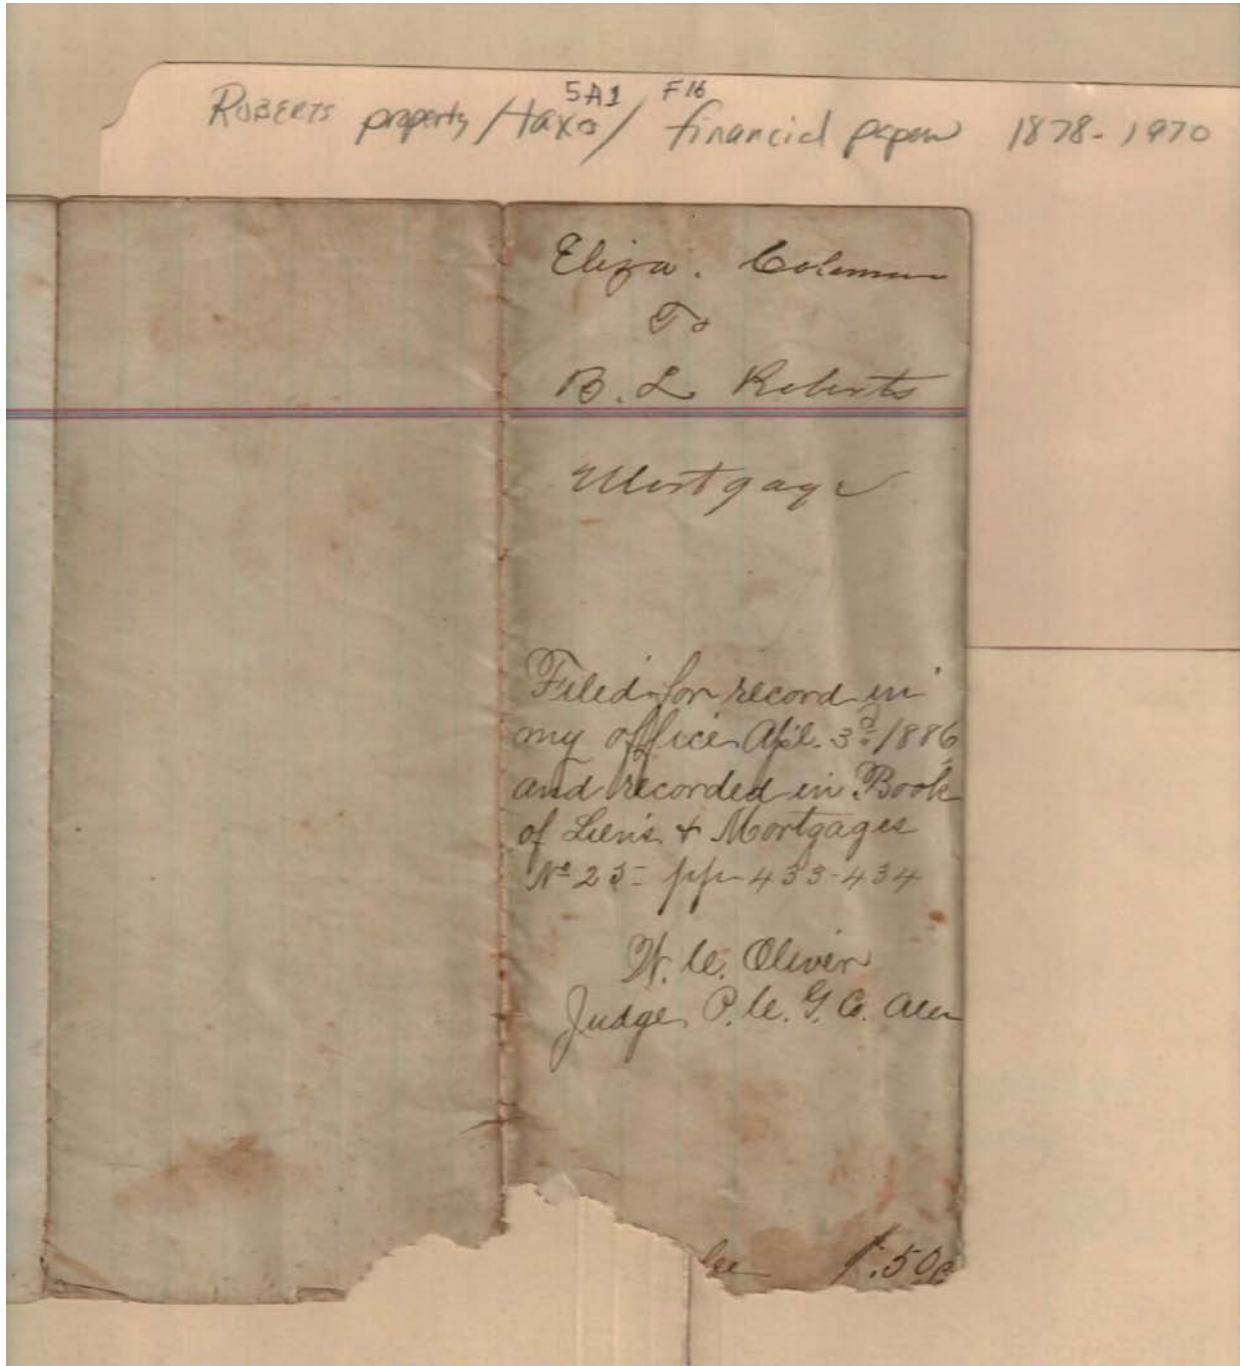 5A1 F16
ROBERTS property / taxes / financial papers 1878-1970
Eliza. Coleman
To
B. L Roberts
Mortgage
Filed for record in
my office Apl. 3d /1886
and recorded in Book
of Liens & Mortgages
No 25 pp 433-434
W. C. Oliver
Judge P. C. G. Co. Ala
fee 1.50